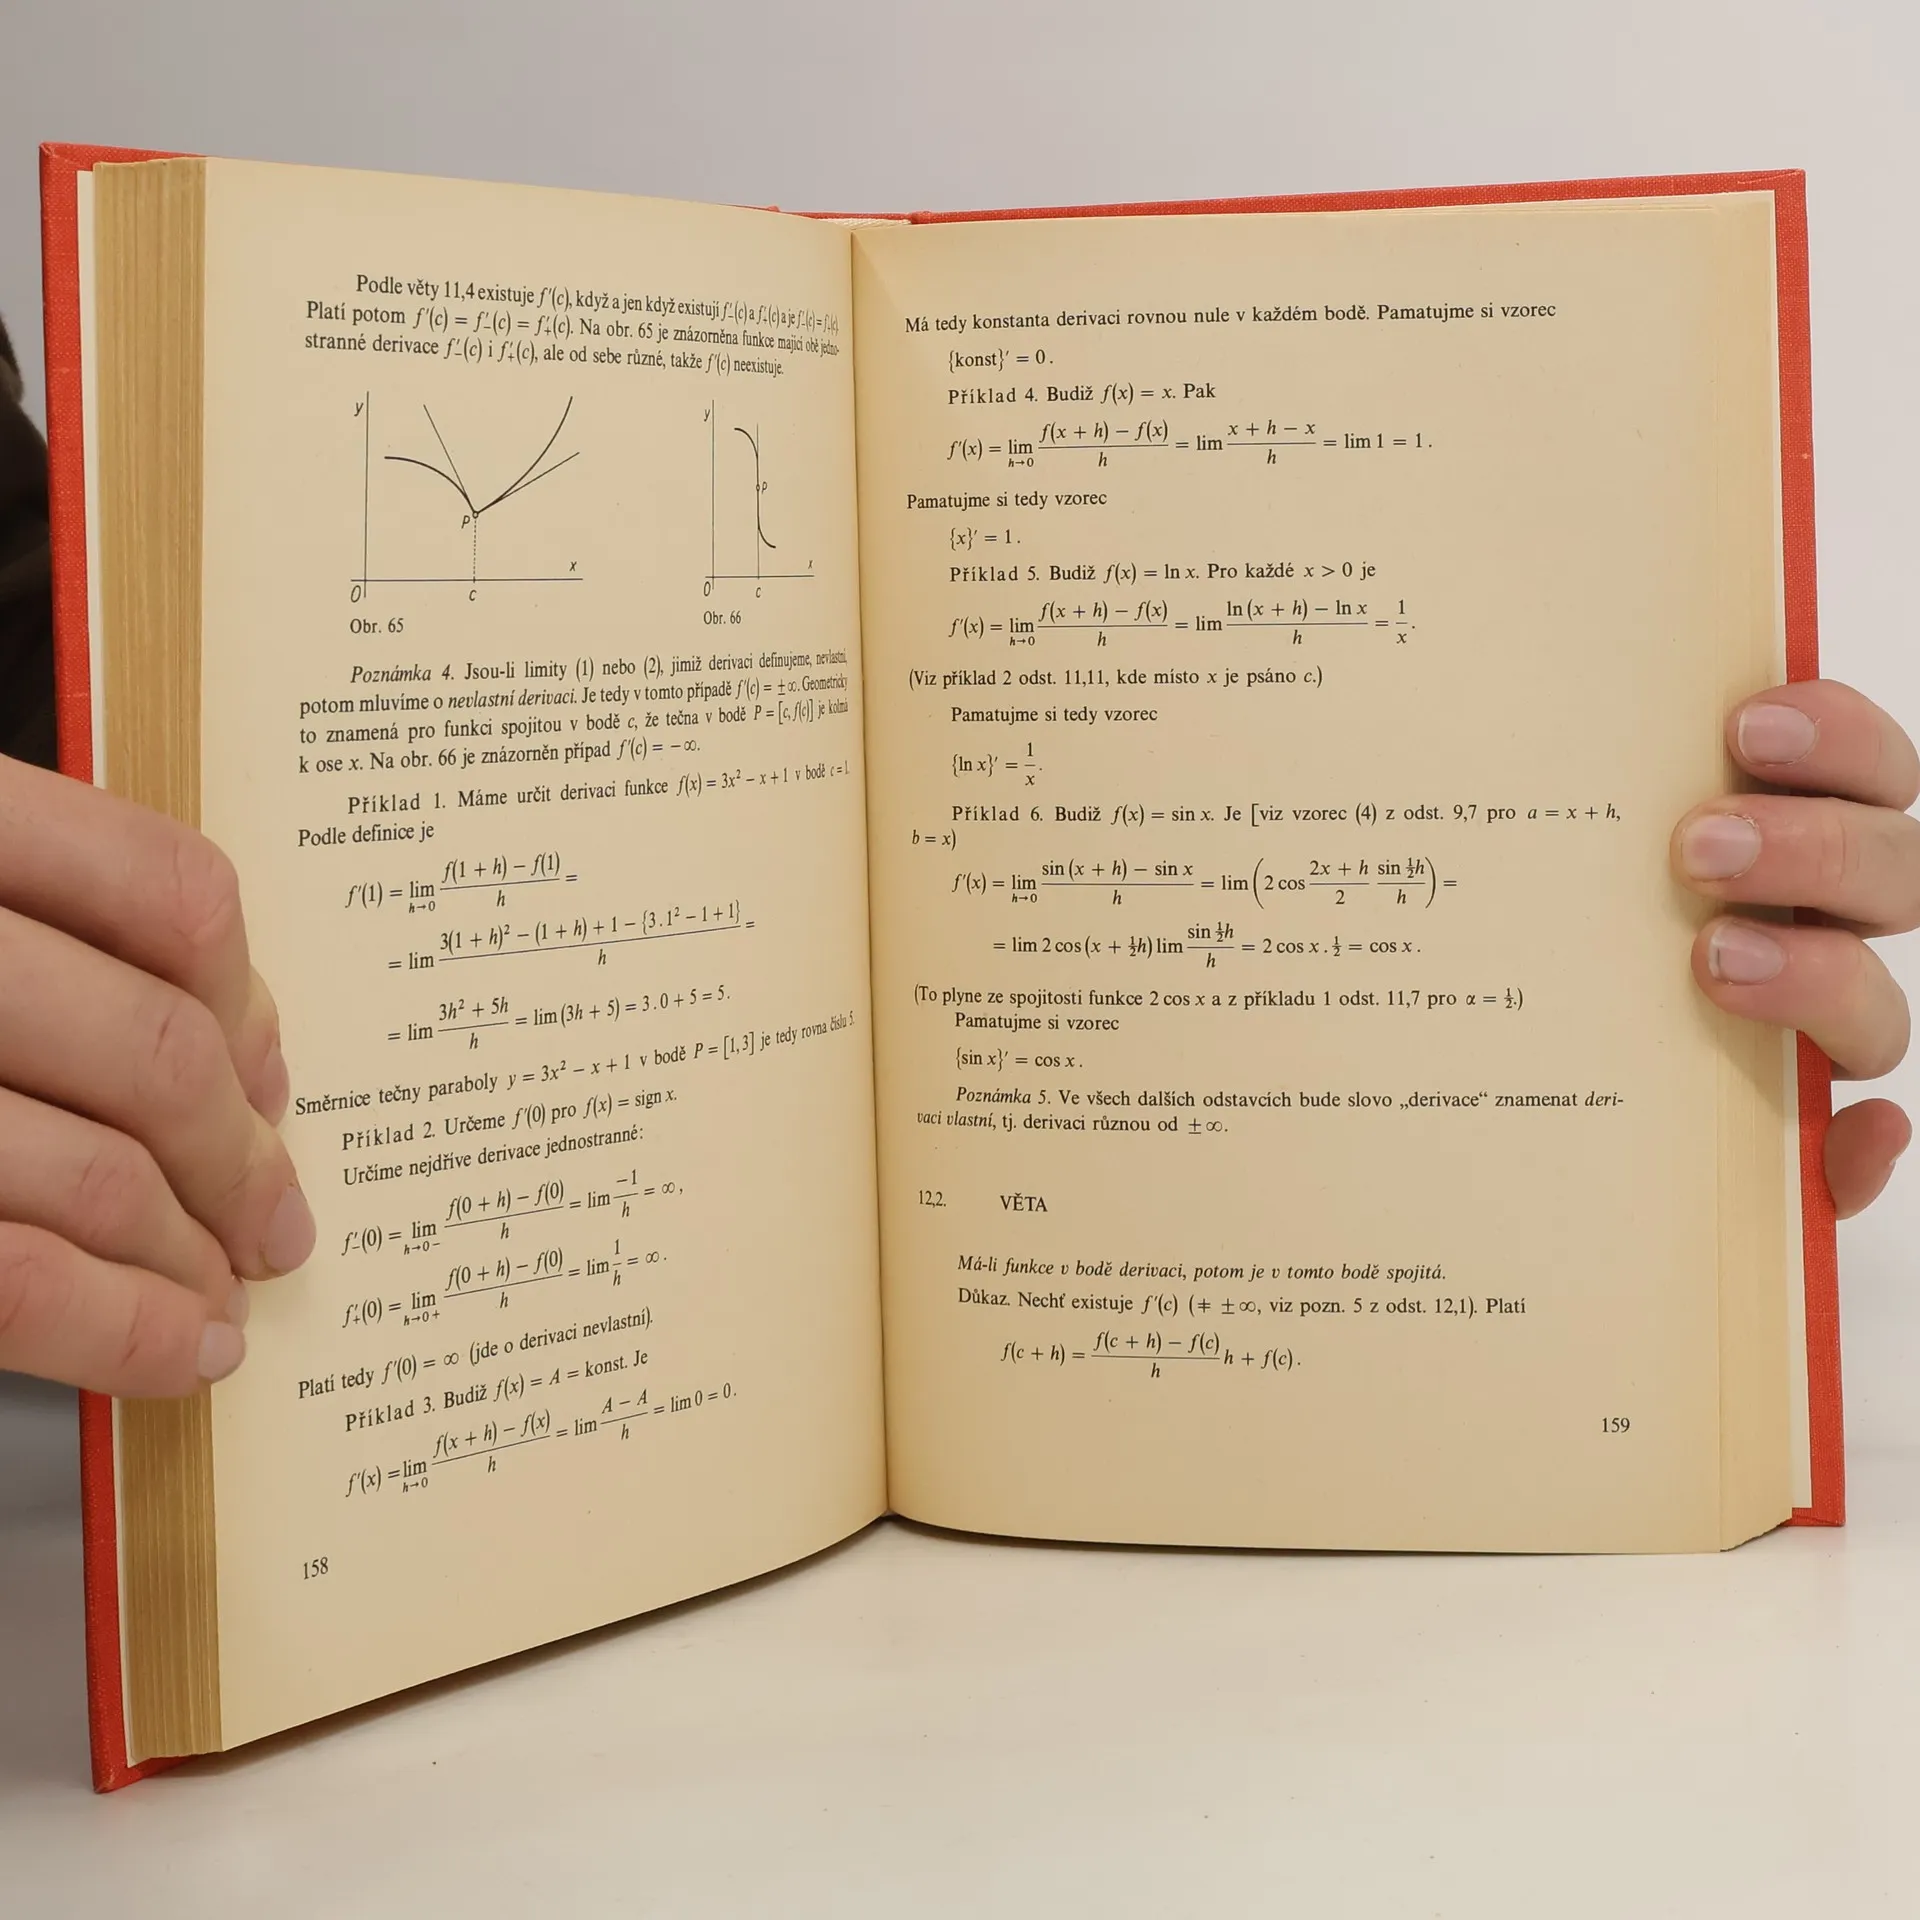 Podle věty 11,4 existuje f′(c), když a jen když existují f′₋(c) a f′₊(c) a je f′₋(c) = f′₊(c).
Platí potom f′(c) = f′₋(c) = f′₊(c). Na obr. 65 je znázorněna funkce mající obě jedno-
stranné derivace f′₋(c) i f′₊(c), ale od sebe různé, takže f′(c) neexistuje.
y
P
x
O
c
Obr. 65
y
P
x
O
c
Obr. 66
Poznámka 4. Jsou-li limity (1) nebo (2), jimiž derivaci definujeme, nevlastní,
potom mluvíme o nevlastní derivaci. Je tedy v tomto případě f′(c) = ±∞. Geometricky
to znamená pro funkci spojitou v bodě c, že tečna v bodě P = [c, f(c)] je kolmá
k ose x. Na obr. 66 je znázorněn případ f′(c) = −∞.
Příklad 1. Máme určit derivaci funkce f(x) = 3x² − x + 1 v bodě c = 1.
Podle definice je
f′(1) = lim_{h→0} \frac{f(1 + h) − f(1)}{h} =
= lim \frac{3(1 + h)² − (1 + h) + 1 − {3 . 1² − 1 + 1}}{h} =
= lim \frac{3h² + 5h}{h} = lim (3h + 5) = 3 . 0 + 5 = 5.
Směrnice tečny paraboly y = 3x² − x + 1 v bodě P = [1, 3] je tedy rovna číslu 5.
Příklad 2. Určeme f′(0) pro f(x) = sign x.
Určíme nejdříve derivace jednostranné:
f′₋(0) = lim_{h→0−} \frac{f(0 + h) − f(0)}{h} = lim \frac{−1}{h} = ∞,
f′₊(0) = lim_{h→0+} \frac{f(0 + h) − f(0)}{h} = lim \frac{1}{h} = ∞.
Platí tedy f′(0) = ∞ (jde o derivaci nevlastní).
Příklad 3. Budiž f(x) = A = konst. Je
f′(x) = lim_{h→0} \frac{f(x + h) − f(x)}{h} = lim \frac{A − A}{h} = lim 0 = 0.
158
Má tedy konstanta derivaci rovnou nule v každém bodě. Pamatujme si vzorec
{konst}′ = 0.
Příklad 4. Budiž f(x) = x. Pak
f′(x) = lim_{h→0} \frac{f(x + h) − f(x)}{h} = lim \frac{x + h − x}{h} = lim 1 = 1.
Pamatujme si tedy vzorec
{x}′ = 1.
Příklad 5. Budiž f(x) = ln x. Pro každé x > 0 je
f′(x) = lim_{h→0} \frac{f(x + h) − f(x)}{h} = lim \frac{ln (x + h) − ln x}{h} = \frac{1}{x}.
(Viz příklad 2 odst. 11,11, kde místo x je psáno c.)
Pamatujme si tedy vzorec
{ln x}′ = \frac{1}{x}.
Příklad 6. Budiž f(x) = sin x. Je [viz vzorec (4) z odst. 9,7 pro a = x + h,
b = x)
f′(x) = lim_{h→0} \frac{sin (x + h) − sin x}{h} = lim (2 cos \frac{2x + h}{2} \frac{sin ½h}{h}) =
= lim 2 cos (x + ½h) lim \frac{sin ½h}{h} = 2 cos x . ½ = cos x.
(To plyne ze spojitosti funkce 2 cos x a z příkladu 1 odst. 11,7 pro α = ½.)
Pamatujme si vzorec
{sin x}′ = cos x.
Poznámka 5. Ve všech dalších odstavcích bude slovo „derivace“ znamenat deri-
vaci vlastní, tj. derivaci různou od ±∞.
12,2. VĚTA
Má-li funkce v bodě derivaci, potom je v tomto bodě spojitá.
Důkaz. Nechť existuje f′(c) (≠ ±∞, viz pozn. 5 z odst. 12,1). Platí
f(c + h) = \frac{f(c + h) − f(c)}{h} h + f(c).
159